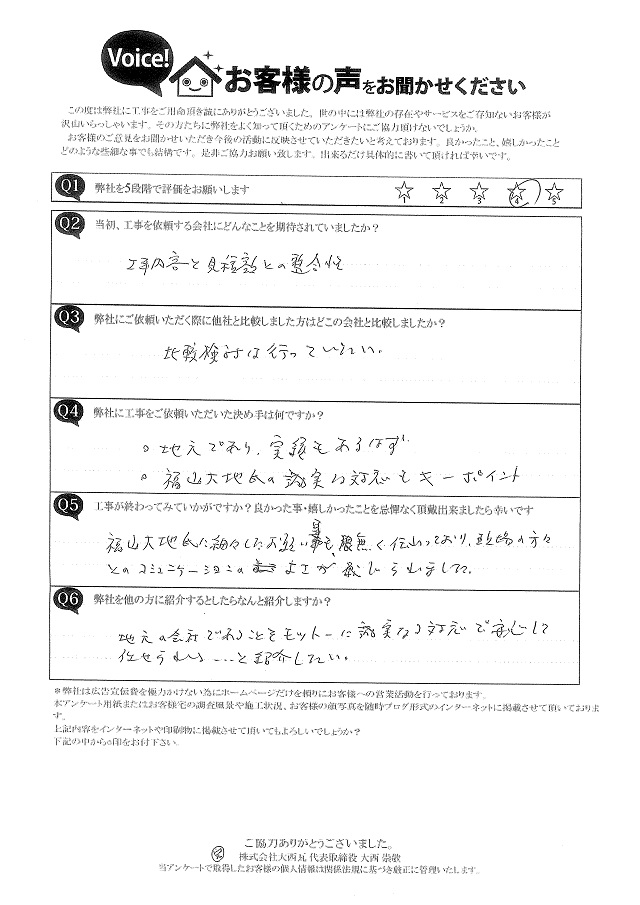 Voice!
お客様の声をお聞かせください
この度は弊社に工事をご用命頂き誠にありがとうございました。世の中には弊社の存在やサービスをご存知ないお客様が
沢山いらっしゃいます。その方たちに弊社をよく知って頂くためのアンケートにご協力頂けないでしょうか。
お客様のご意見をお聞かせいただき今後の活動に反映させていただきたいと考えております。良かったこと、嬉しかったこと
どのような些細な事でも結構です。是非ご協力お願い致します。出来るだけ具体的に書いて頂ければ幸いです。
Q1 弊社を5段階で評価をお願いします 1 2 3 4 5
Q2 当初、工事を依頼する会社にどんなことを期待されていましたか?
工事内容と見積額との整合性
Q3 弊社にご依頼いただく際に他社と比較しました方はどこの会社と比較しましたか?
比較検討は行っていない。
Q4 弊社に工事をご依頼いただいた決め手は何ですか?
○ 地元であり、実績もあるはず
○ 福山大地氏の誠実な対応もキーポイント
Q5 工事が終わってみていかがですか?良かった事・嬉しかったことを忌憚なく頂戴出来ましたら幸いです
福山大地氏に細々したお願い事も、無く伝わっており、現場の方々
とのコミュニケーションのよさが感じられました。
Q6 弊社を他の方に紹介するとしたらなんと紹介しますか?
地元の会社であることをモットーに誠実なる対応で安心して
任せられる…と紹介したい。
*弊社は広告宣伝費を極力かけない為にホームページだけを頼りにお客様への営業活動を行っております。
本アンケート用紙またはお客様宅の調査風景や施工状況、お客様の顔写真を随時ブログ形式のインターネットに掲載させて頂いておりま
す。
上記内容をインターネットや印刷物に掲載させて頂いてもよろしいでしょうか?
下記の中から○印をお付下さい。
ご協力ありがとうございました。
株式会社大西瓦 代表取締役 大西 崇敬
当アンケートで取得したお客様の個人情報は関係法規に基づき厳正に管理いたします。